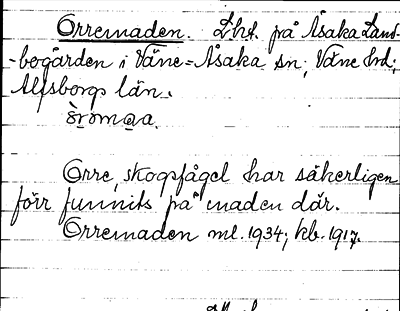 Orremaden. Lht. på Åsaka Land-
-bogården i Väne-Åsaka sn, Väne hd,
Älfsborgs län.
Orre, skogsfågel har säkerligen
förr funnits på maden där.
Orremaden ml. 1934; kb. 1917.